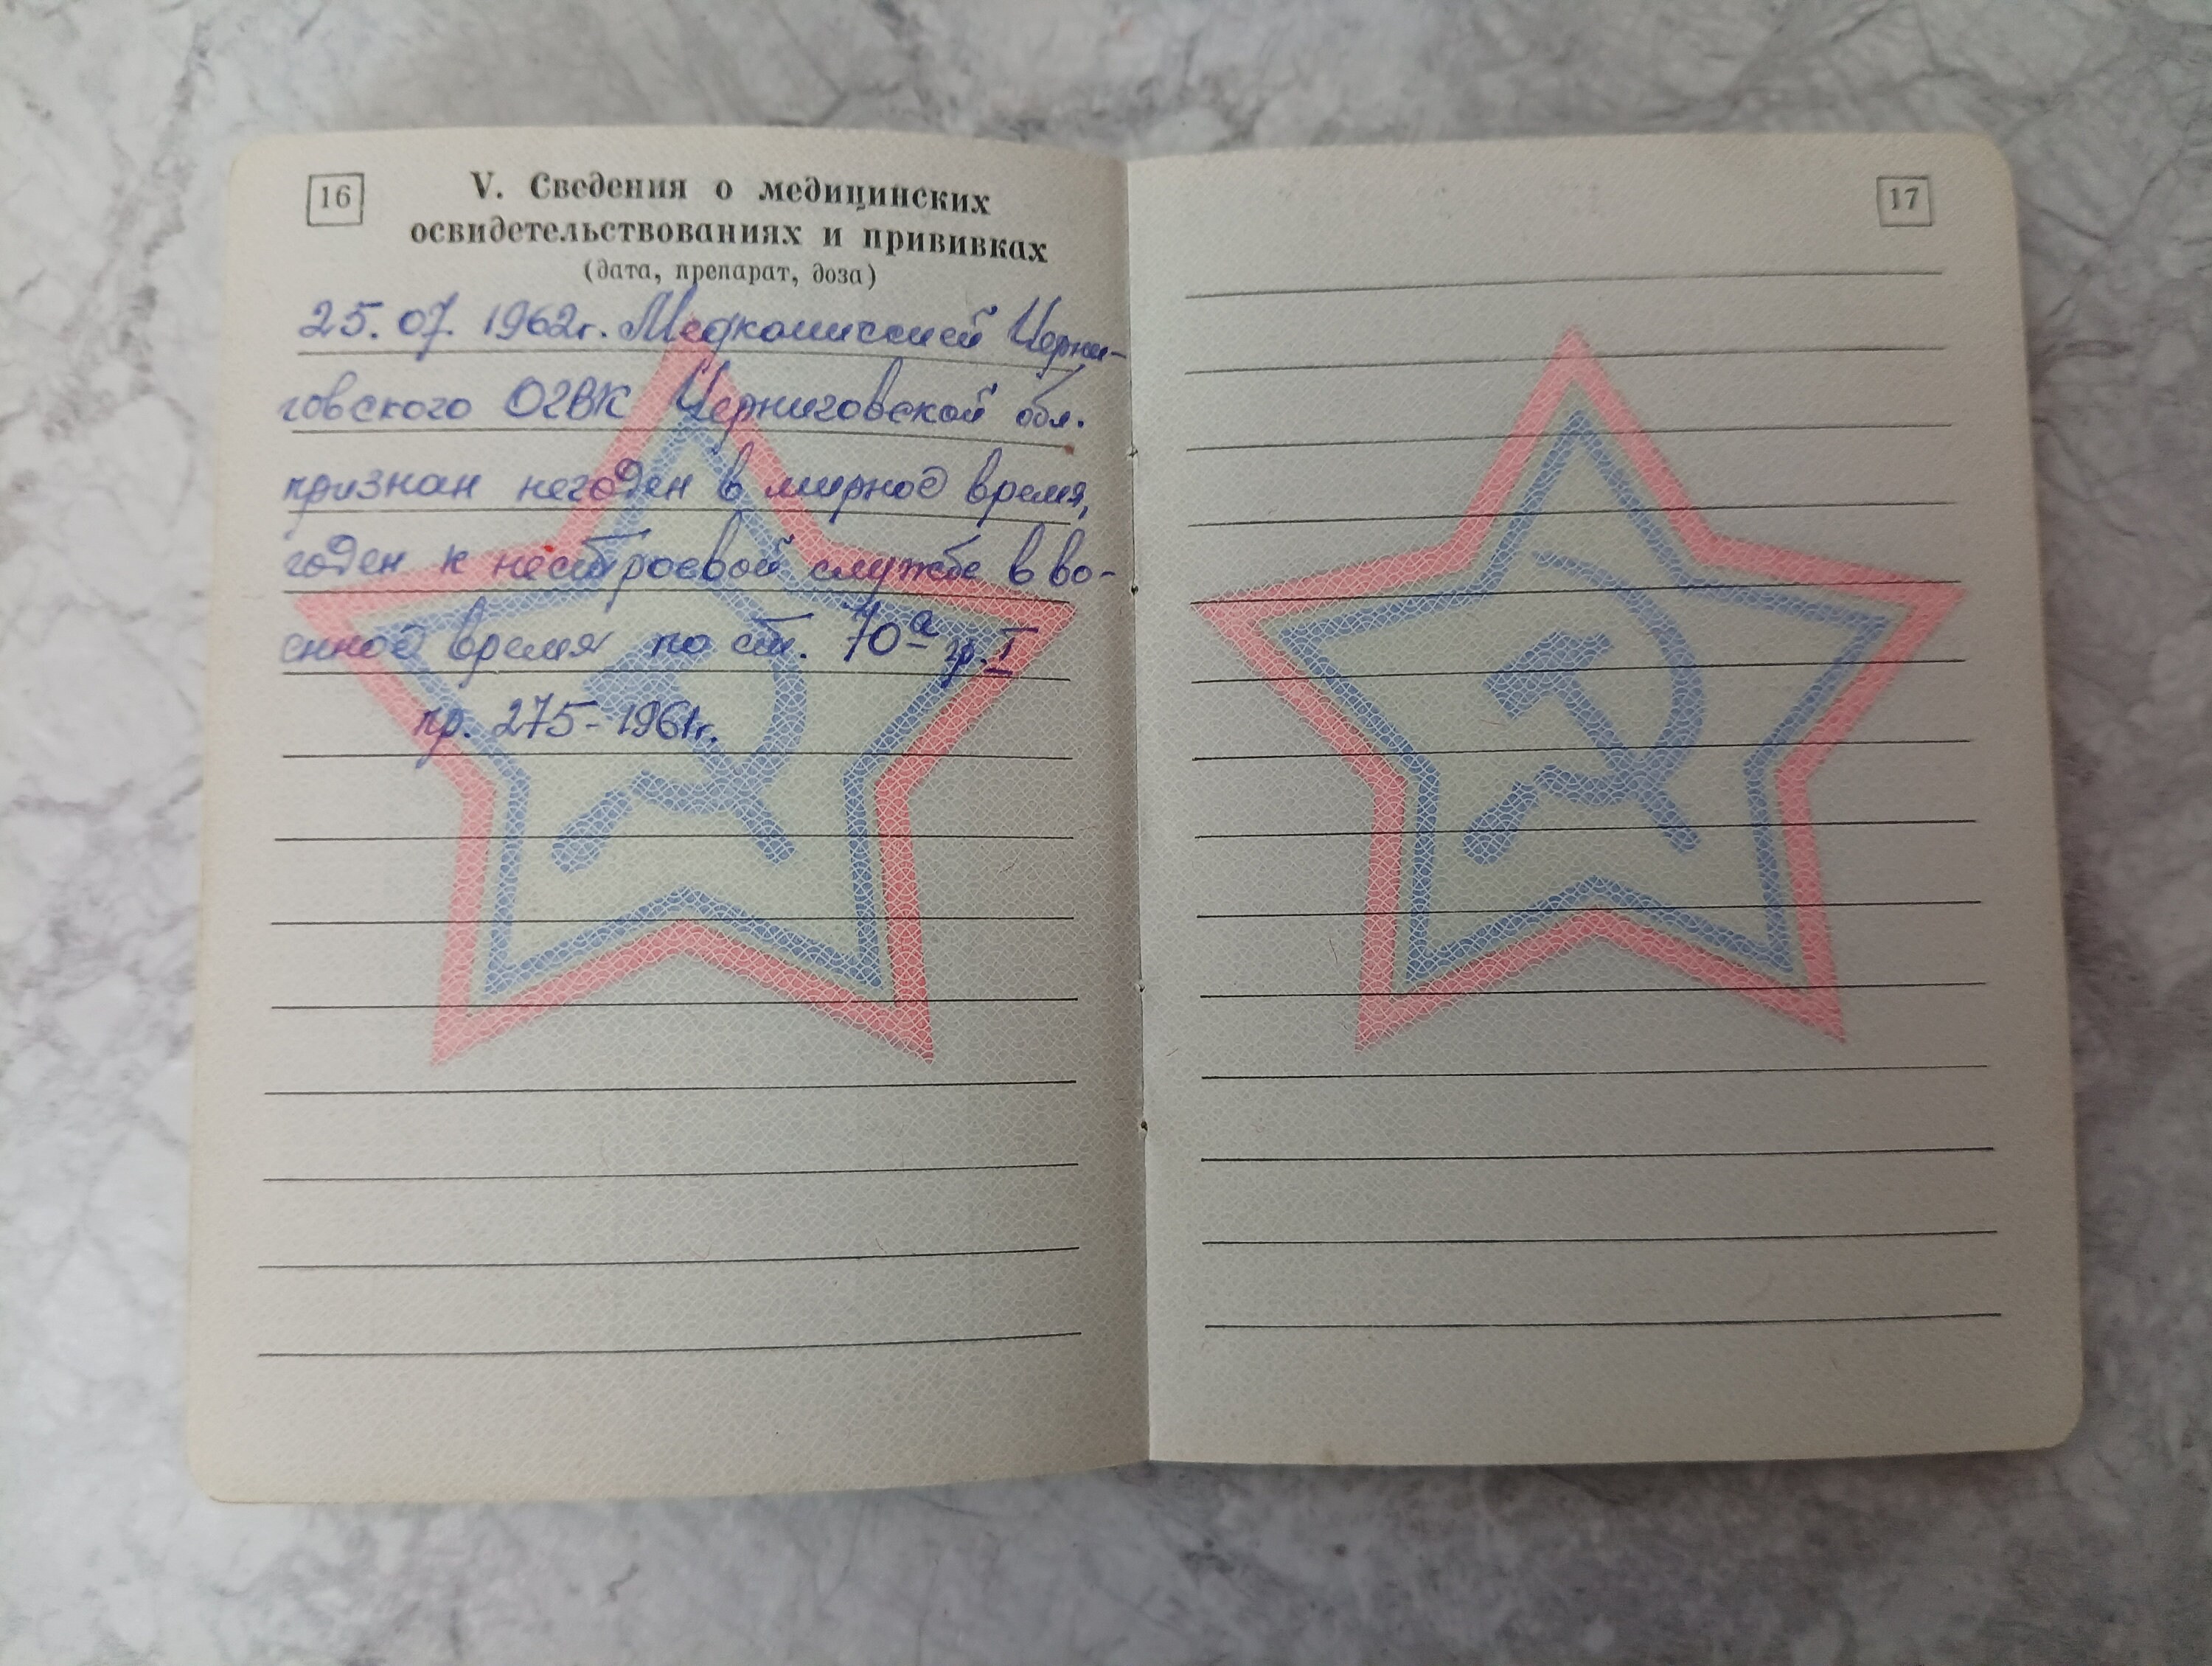 16
V. Сведения о медицинских
освидетельствованиях и прививках
(дата, препарат, доза)
25.07.1962г. Медкомиссией Черни-
говского ОГВК Черниговской обл.
признан негоден в мирное время,
годен к нестроевой службе в во-
енное время по ст. 70а гр. I
пр. 275-1961г.
17